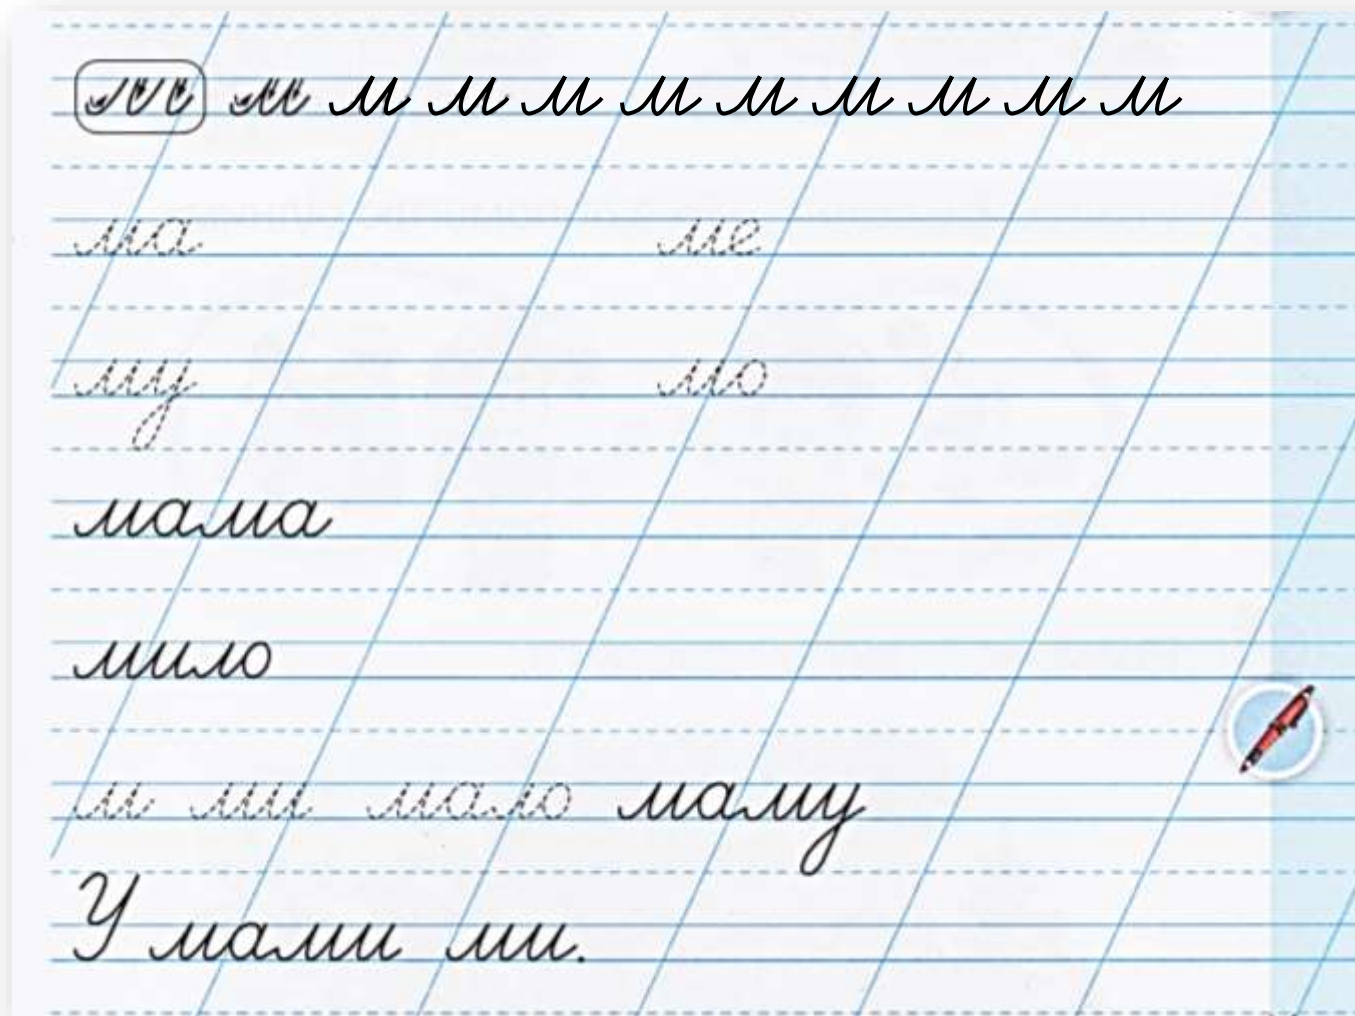 м м м м м м м м м м
ма ме
му мо
мама
мило
м ми мало маму
У мами ми.